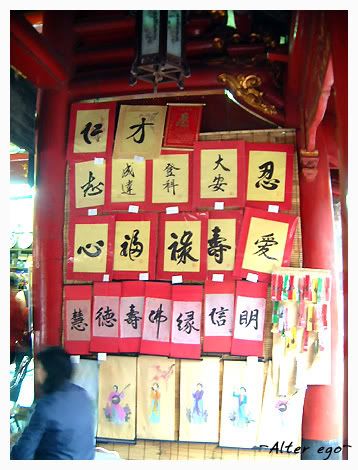 仁 才
成達 登科 大安 忍
心 福 祿 壽 愛
慧 德 壽 佛 緣 信 明
~Alter ego~